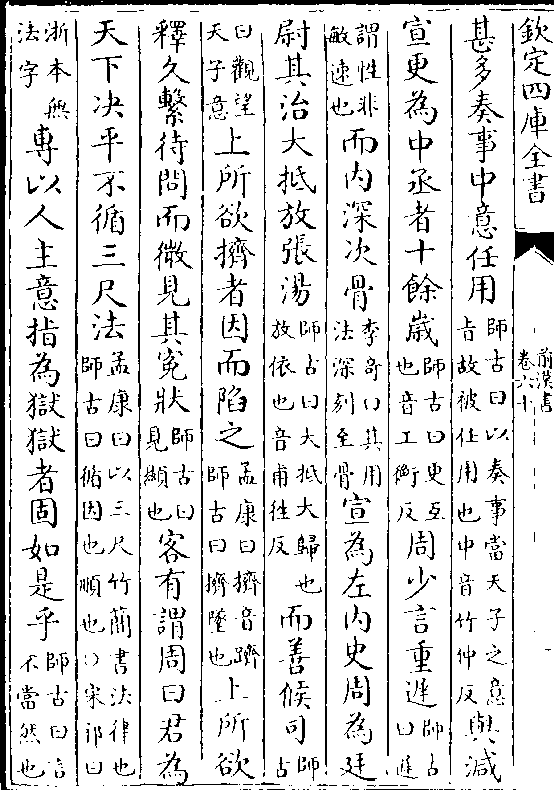 欽定四庫全書
前漢書
卷六十
甚多奏事中意任用師古曰以奏事當天子之意旨故被任用也中音竹仲反與減
宣更為中丞者十餘歲師古曰更互也音工衡反周少言重遲師古曰遲
謂性非敏速也而内深次骨李奇曰其用法深刻至骨宣為左内史周為廷
尉其治大抵放張湯師古曰大抵大歸也放依也音甫往反而善候司師古
曰觀望天子意上所欲擠者因而陷之孟康曰擠音躋師古曰擠墜也上所欲
釋久繫待問而微見其寃狀師古曰見顯也客有謂周曰君為
天下决平不循三尺法孟康曰以三尺竹簡書法律也師古曰循因也順也〇宋祁曰
浙本無法字專以人主意指為獄獄者固如是乎師古曰言不當然也